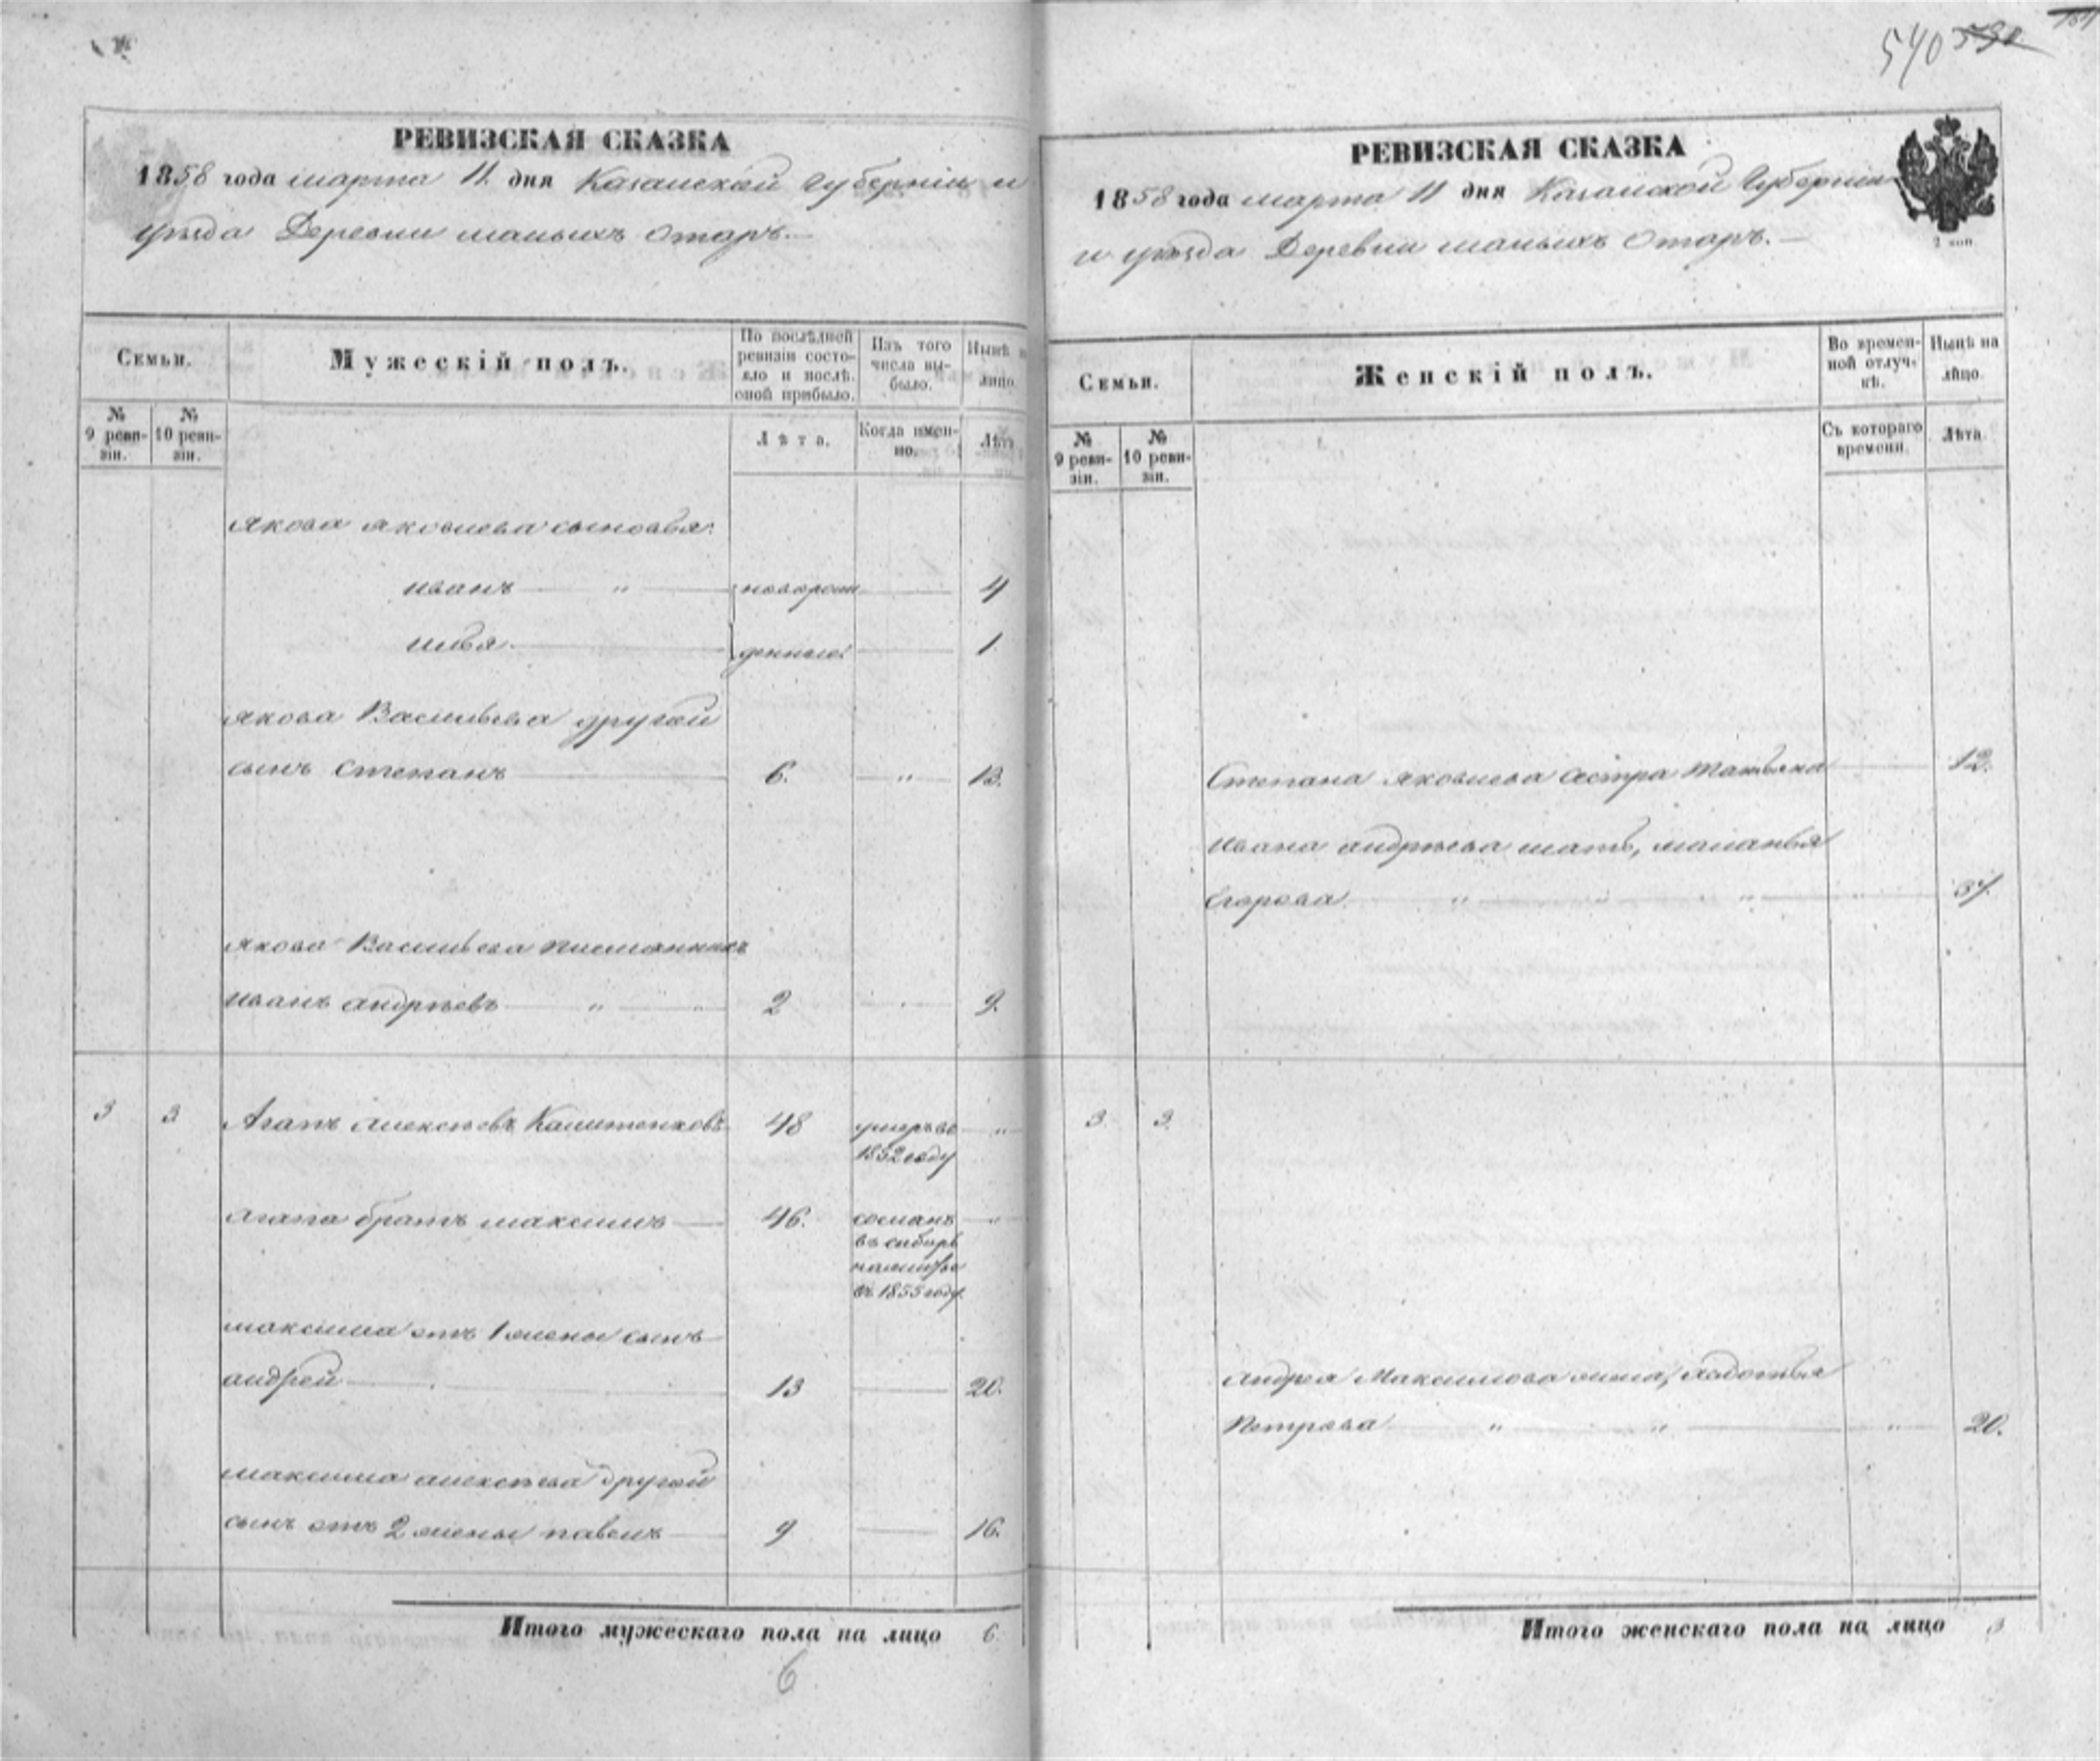 540 530
РЕВИЗСКАЯ СКАЗКА
1858 года марта 11 дня Казанской Губерніи и
уѣзда Деревни малыхъ Отаръ.
Семьи.
Мужескій полъ.
По послѣдней
ревизіи состо-
яло и послѣ
оной прибыло.
Изъ того
числа вы-
было.
Нынѣ на
лицо.
№
9 реви-
зіи.
№
10 реви-
зіи.
Лѣта.
Когда имен-
но.
Лѣта
Якова Яковлева сыновья:
Иванъ " новорож 4
Илья денные 1
Якова Васильева другой
сынъ Степанъ 6. " 13.
Якова Васильева племянникъ
Иванъ Андреевъ " 2 9.
3 3 Агапъ Алексѣевъ 48 умеръ въ "
1852 году
Агапа братъ Максимъ 46. сосланъ "
въ сибирь
въ 1855 году
Максима отъ 1 жены сынъ
Андрей 13 20.
Максима Алексѣева другой
сынъ отъ 2 жены Павелъ 9 16.
Итого мужескаго пола на лицо 6.
6
РЕВИЗСКАЯ СКАЗКА
1858 года марта 11 дня Казанской Губерніи
и уѣзда Деревни малыхъ Отаръ.
2 коп.
Семьи.
Женскій полъ.
Во времен-
ной отлуч-
кѣ.
Нынѣ на
лицо.
№
9 реви-
зіи.
№
10 реви-
зіи.
Съ котораго
времени.
Лѣта.
Степана Яковлева сестра Татьяна 12.
Ивана Андреева мать, Маланья
Егорова " "
3. 3.
Андрея Максимова жена, Авдотья
Петрова " " " 20.
Итого женскаго пола на лицо 3